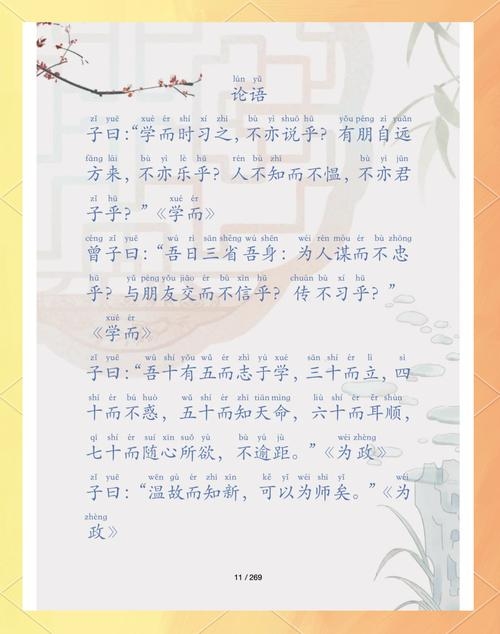 lún yǔ
论语
zǐ yuē xué ér shí xí zhī bù yì shuō hū yǒu péng zì yuǎn
子曰：“学而时习之，不亦说乎？有朋自远
fāng lái bù yì lè hū rén bù zhī bù yì jūn
方来，不亦乐乎？人不知而不愠，不亦君
zǐ hū xué ér
子乎？”《学而》
céng zǐ yuē wú rì sān shěng wú shēn wéi rén móu ér bù zhōng
曾子曰：“吾日三省吾身：为人谋而不忠
hū yǔ péng yǒu jiāo ér bù xìn hū chuán bù xí hū
乎？与朋友交而不信乎？传不习乎？”
xué ér
《学而》
zǐ yuē wú shí yǒu wǔ ér zhì yú xué sān shí ér lì sì
子曰：“吾十有五而志于学，三十而立，四
shí ér bú huò wǔ shí ér zhī tiān mìng liù shí ér ěr shùn
十而不惑，五十而知天命，六十而耳顺，
qī shí ér suí xīn suǒ yù bù yú jù wéi zhèng
七十而随心所欲，不逾距。”《为政》
zǐ yuē wēn gù ér zhī xīn kě yǐ wéi shī yǐ wéi
子曰：“温故而知新，可以为师矣。”《为
zhèng
政》
11 / 269